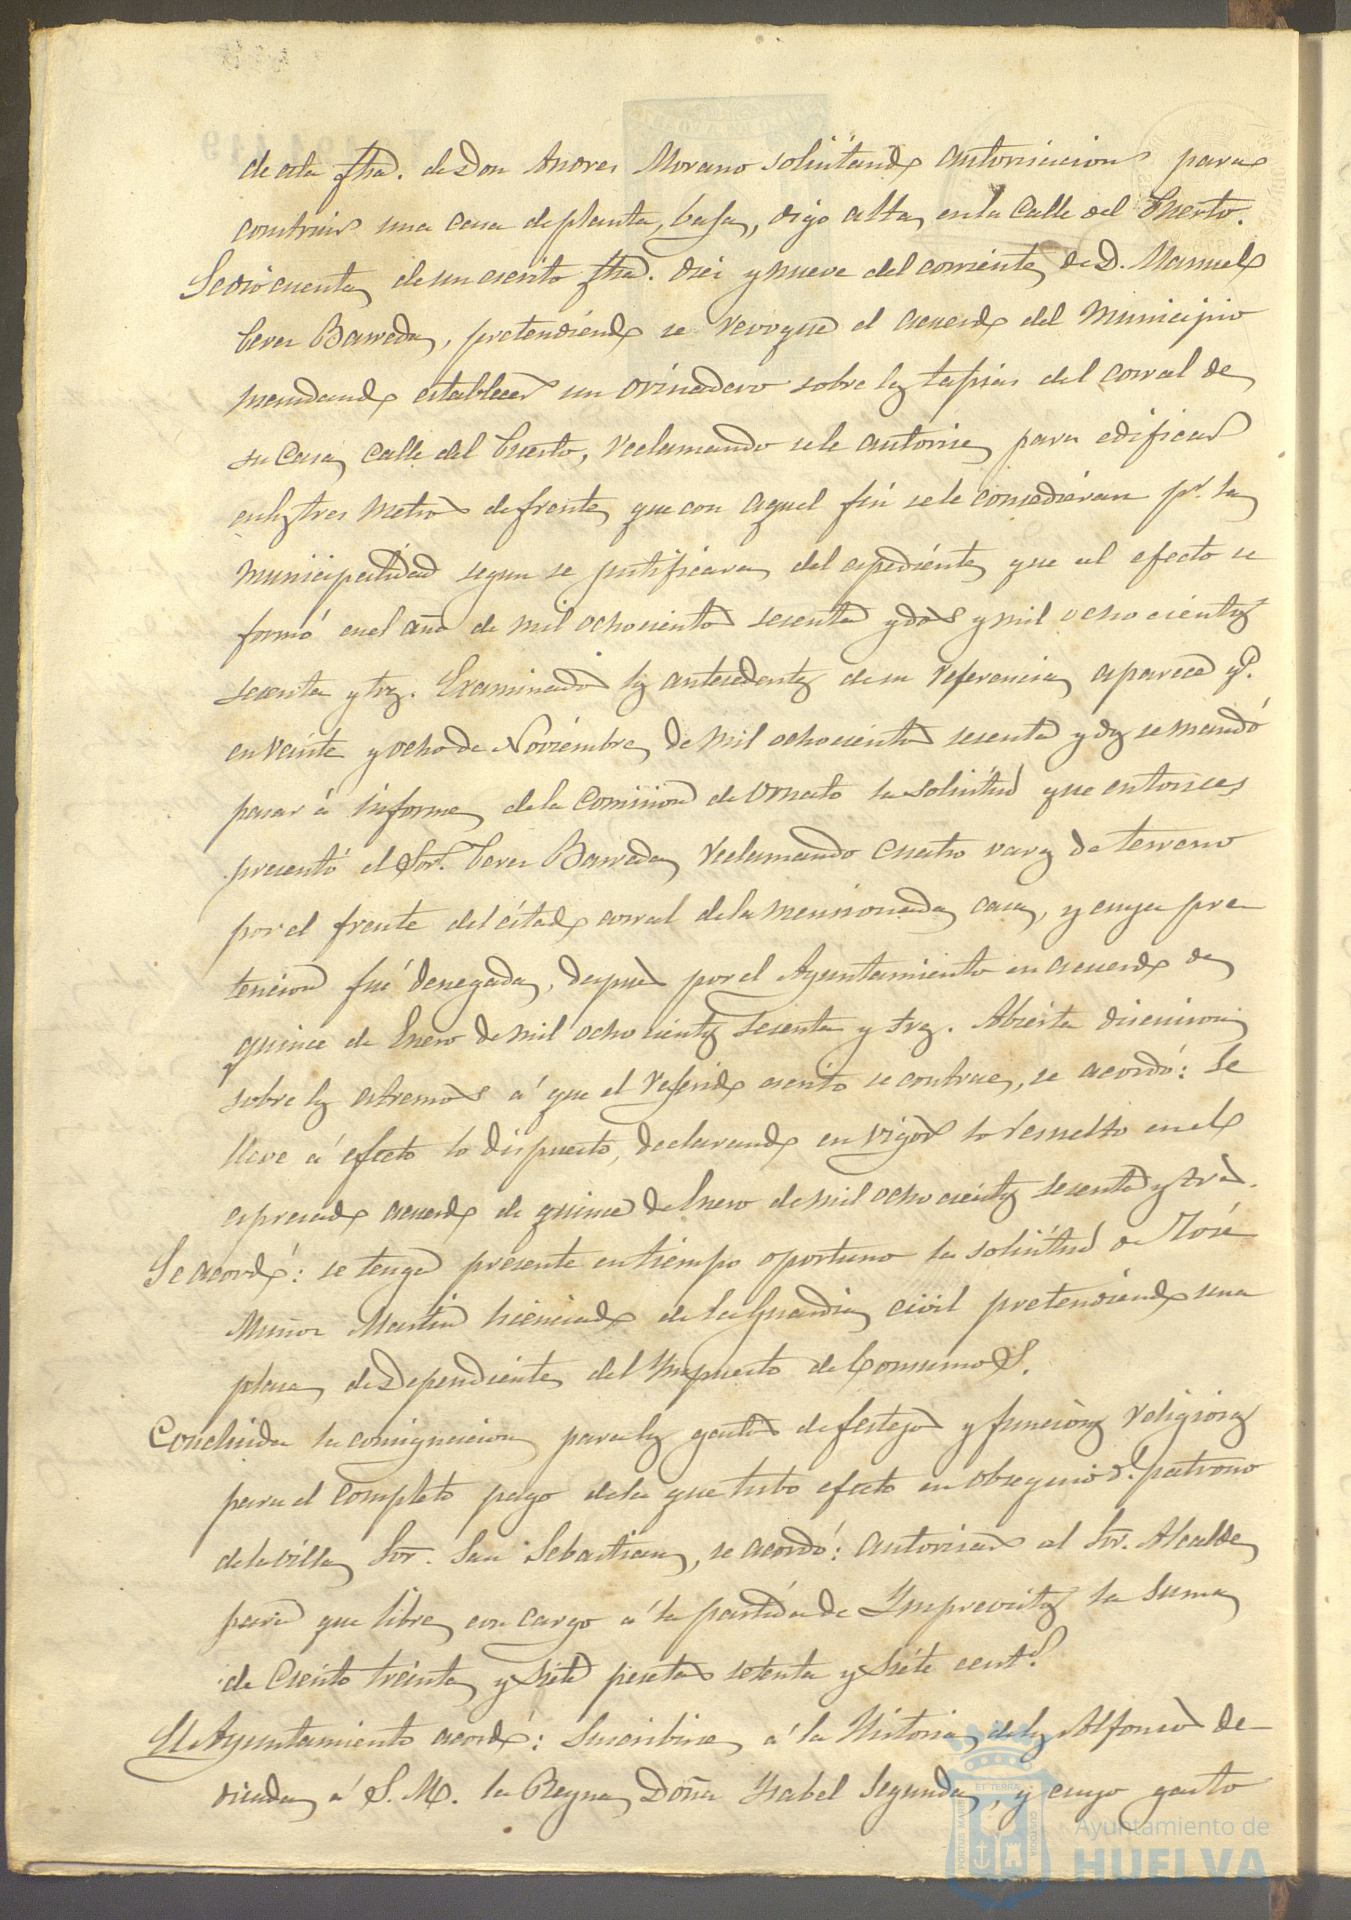 de esta fha. de Don Andres Morano solicitando autorizacion para
construir una casa de planta, baja, digo alta, en la Calle del Puerto.
Se dió cuenta de un escrito fha. diez y nueve del corriente, de D. Manuel
Perez Barreda, pretendiendo se revoque el acuerdo del Municipio
mandando establecer un orinadero sobre las tapias del corral de
su Casa, Calle del Puerto, reclamando se le autorise para edificar
en los tres metros de frente, que con aquel fin se le consedieran pr. la
municipalidad segun se justificara del espediente, que al efecto se
formó en el año de mil ochocientos sesenta y dos y mil ochocientos
sesenta y tres. Examinados los antesedentes de su referencia, aparece q.
en veinte y ocho de Noviembre, de mil ochocientos sesenta y dos se mandó
pasar á informe, de la Comision de Ornato la solicitud que entonces
presentó el Sor. Perez Barreda, reclamando cuatro varas de terreno
por el frente del citado corral de la mensionada casa, y cuya pre
tencion fué denegada, despues por el Ayuntamiento en acuerdo de
quince de Enero de mil ochocientos sesenta y tres. Abierta discusion
sobre los estremos á que el referido escrito se contrae, se acordó: Se
lleve á efecto lo dispuesto, declarando en vigor lo resuelto en el
espresado acuerdo de quince de Enero de mil ochocientos sesenta y tres.
Se acordó: se tenga presente en tiempo oportuno la solicitud de José
Muñoz Martin lisenciado de la Guardia civil pretendiendo una
plasa, de Dependiente, del Ympuesto de Consumos.
Concluida la consignacion para los gastos de festejos y funciones religiosas
para el completo pago de la que tubo efecto en obsequio d. patrono
de la villa, Sor. San Sebastian, se acordó: autorizar al Sor. Alcalde,
para que libre, con cargo á la partida de Ymprevistos la suma
de Ciento treinta, y siete pesetas setenta y siete cents.
El Ayuntamiento acordó: Suscribirse, á la Historia, de los Alfonsos de
dicada, á S. M. la Reyna, Doña Ysabel Segunda, y cuyo gasto
Ayuntamiento de
HUELVA